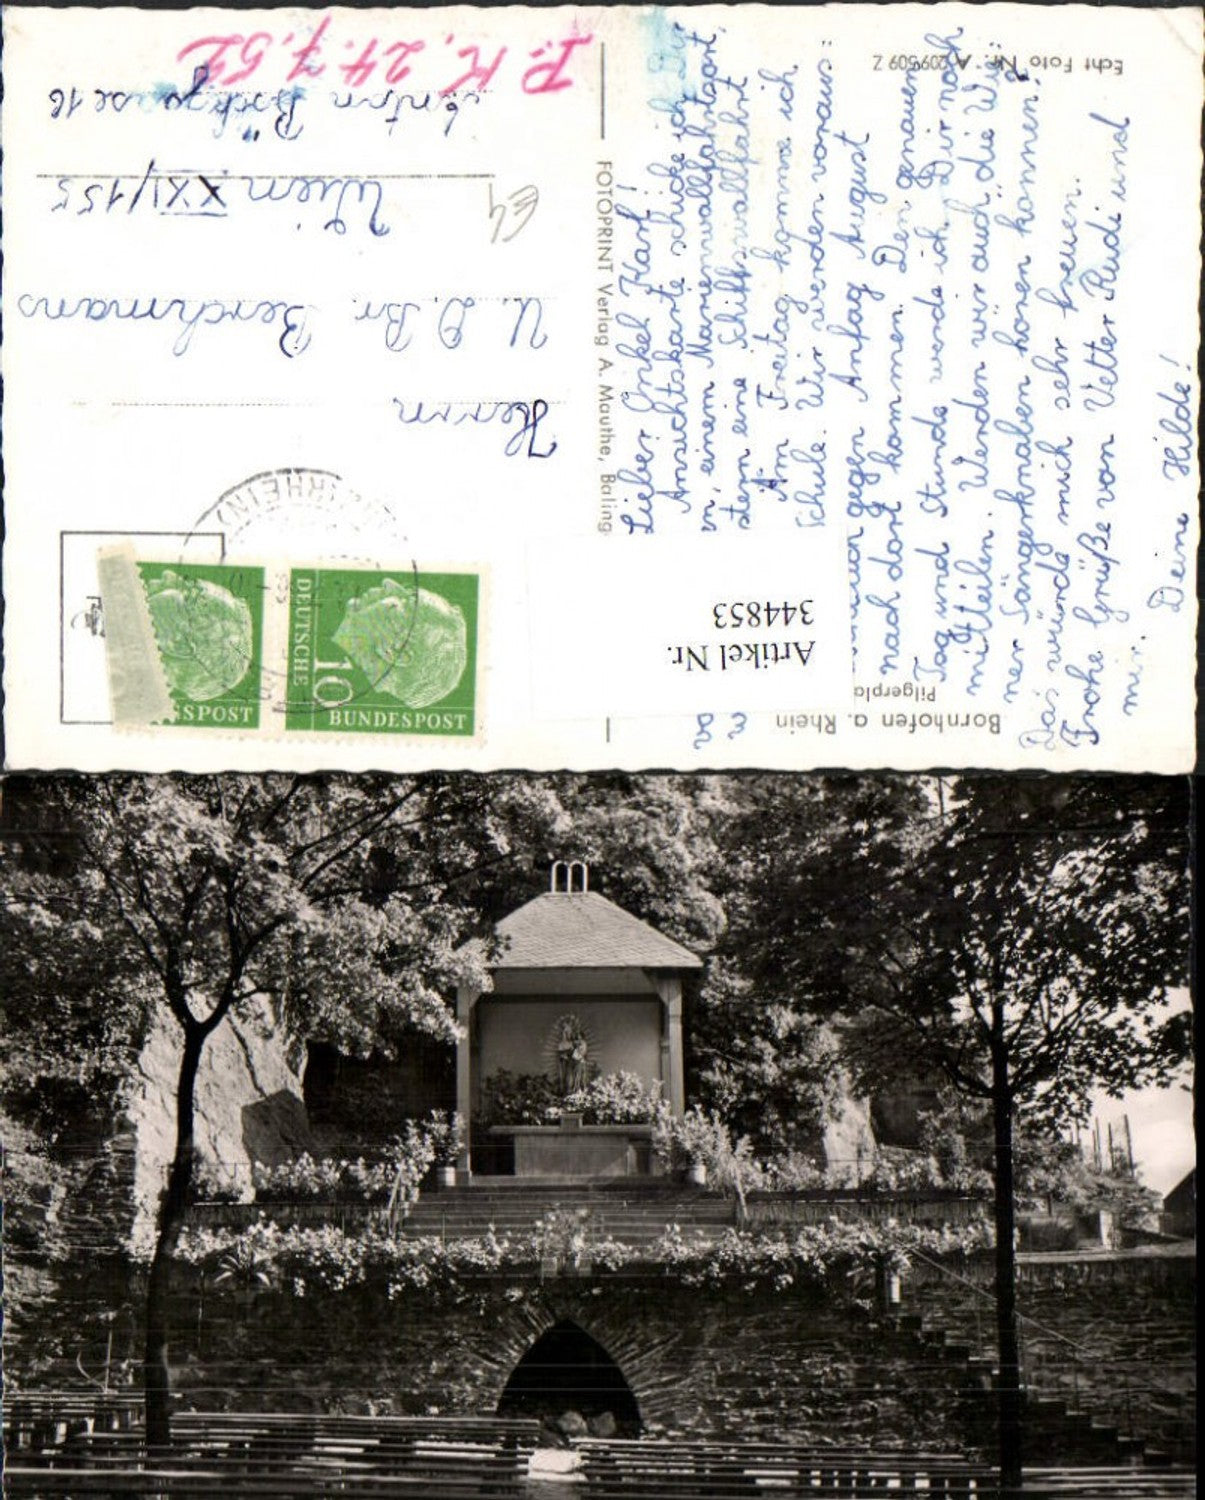 Echt Foto Nr. A 2095509 Z
Lieber Onkel Karl!
Ansichtskarte schicke ich Dir
einem Marienwallfahrtsort,
stern eine Schiffswallfahrt
Am Freitag komme ich
Schule. Wir werden voraus=
gegen Anfag August
nach dort kommen. Den genauen
Tag und Stunde werde ich Dir noch
mitteilen. Werden wir auch die Wie=
ner Sängerknaben hören können?
Das würde mich sehr freuen.
Frohe Grüße von Vetter Rudi und
mir. Deine Hilde!
Bornhofen a. Rhein
Pilgerpla
Artikel Nr.
344853
FOTOPRINT Verlag A. Mauthe, Baling
P. K. 24.7.52
DEUTSCHE
10
BUNDESPOST
SPOST
(RHEIN)
Herrn
U. D. Br. Berchmans
Wien XXI/155
Anton Böckgasse 18
E4